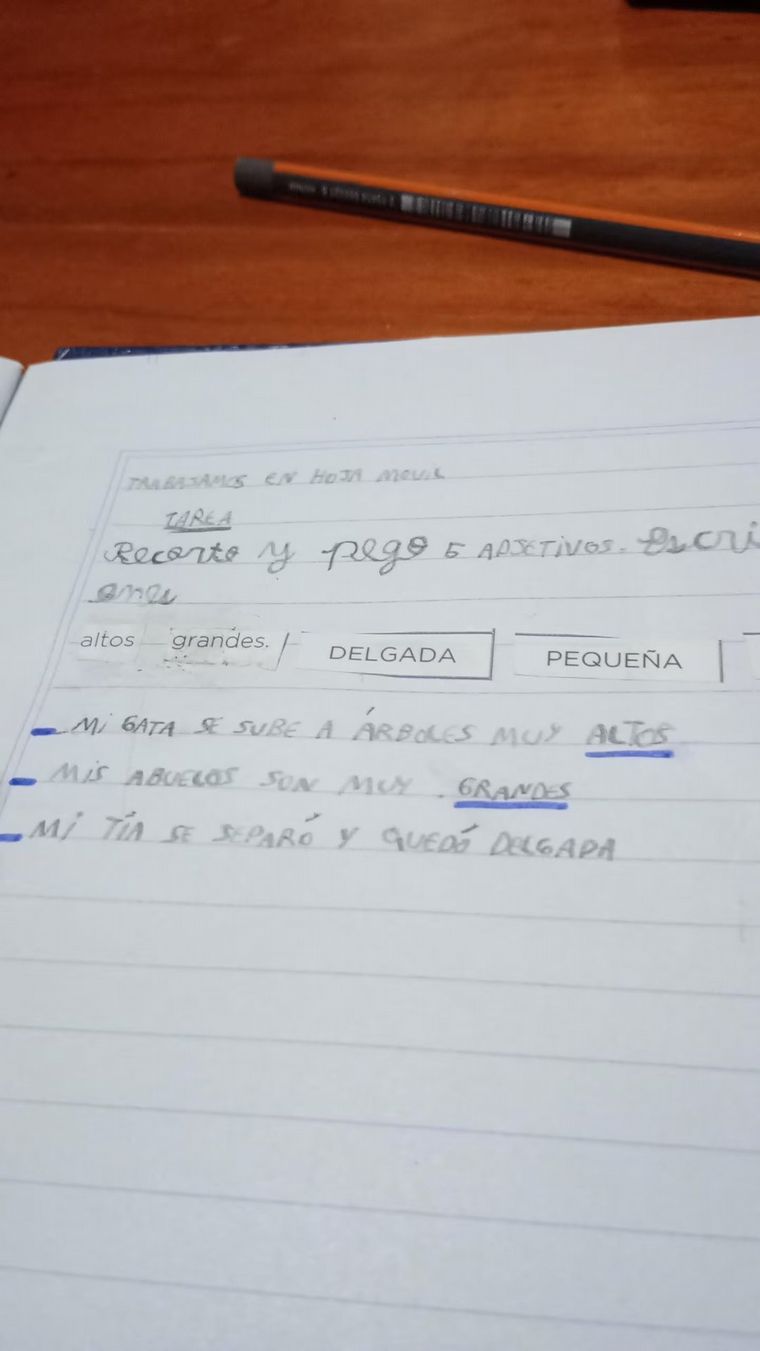 TRABAJAMOS EN HOJA MOVIL
TAREA
Recorto y pego 5 ADJETIVOS. Escri
altos grandes. DELGADA PEQUEÑA
- Mi GATA SE SUBE A ÁRBOLES MUY ALTOS
- Mis ABUELOS SON MUY . GRANDES
- Mi TÍA SE SEPARÓ Y QUEDÓ DELGADA